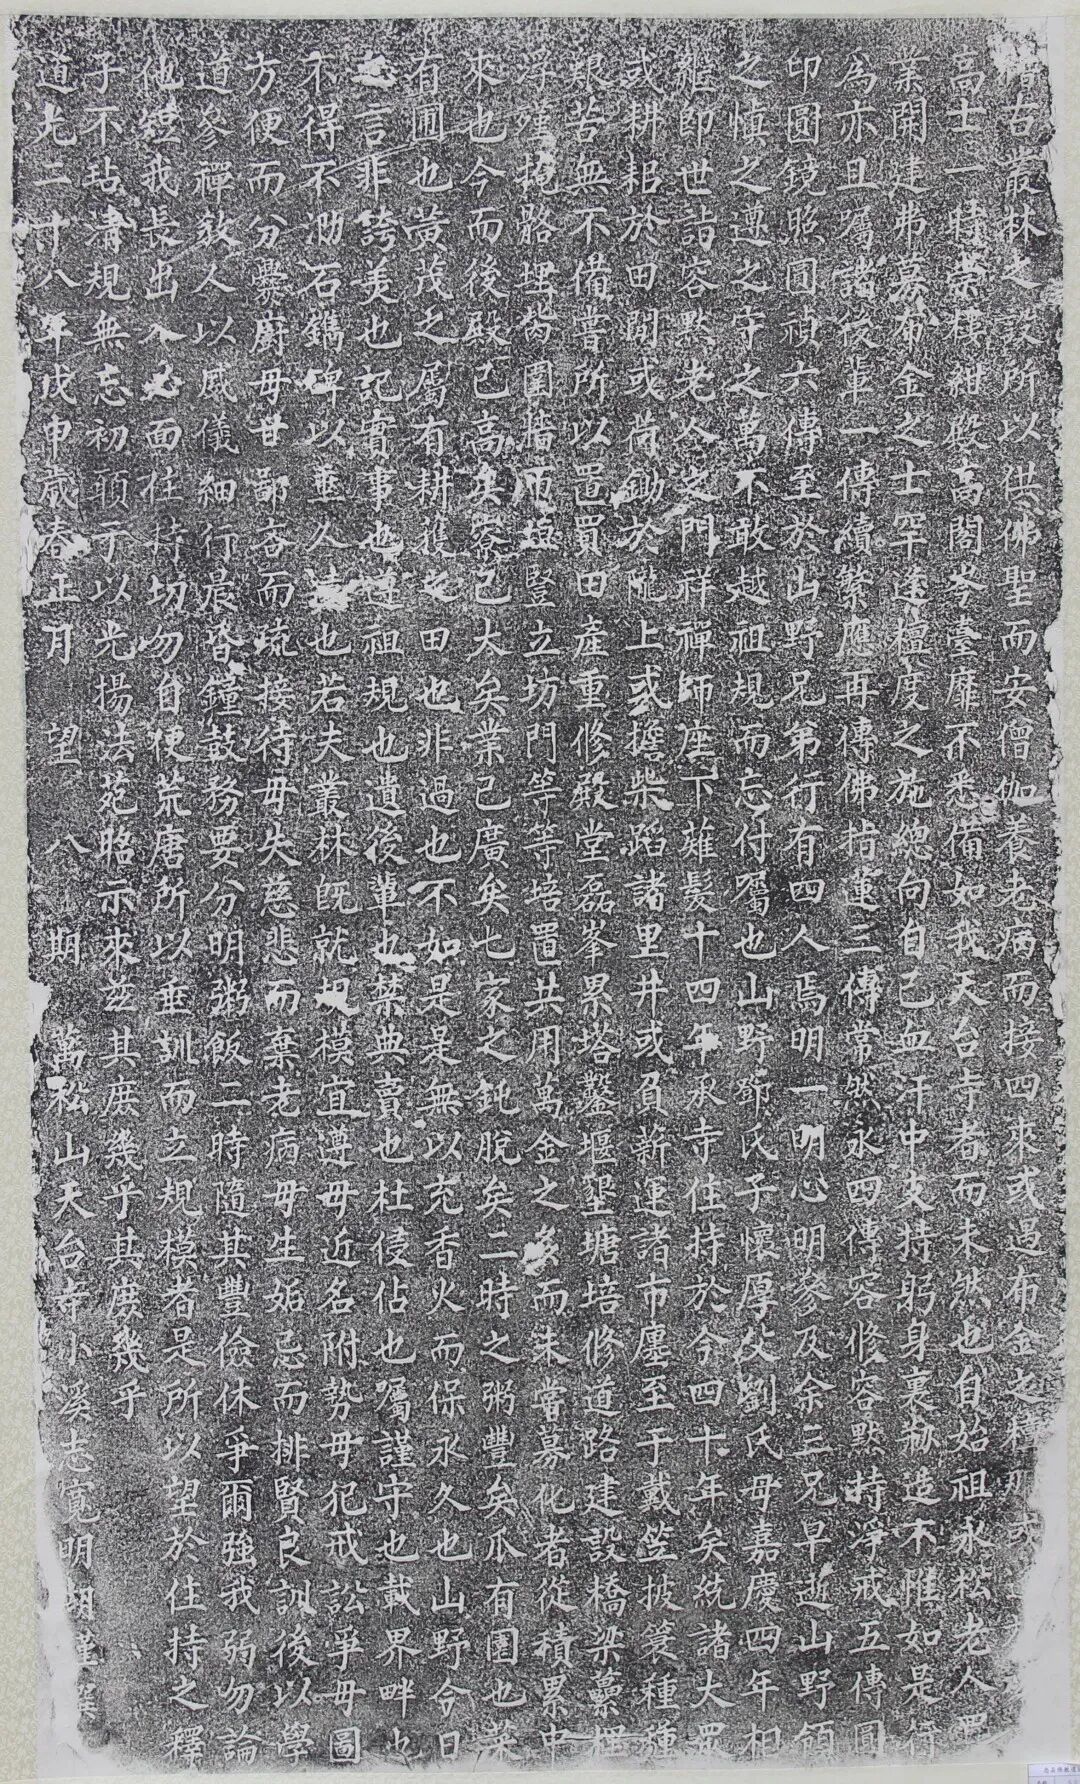 古叢林之設所以供佛聖而安僧伽養老病而接四來或遇布金之檀那或
高士一時崇樓紺殿高閣岑臺靡不悉備如我天台寺者而未然也自始祖永松老人
業開建弗募布金之士罕逢檀度之施總向自己血汗中支持躬身裏赤造不惟如是符
為亦且囑諸後輩一傳續繁應再傳佛指蓮三傳常然永四傳容修容默特淨戒五傳圓
印圓鏡照圓禎六傳至於山野兄弟行有四人焉明一明心明參及余三兄早逝山野領
之慎之遵之守之萬不敢越祖規而忘付囑也山野鄧氏子懷厚父劉氏母嘉慶四年相
繼即世詣容默老人之門祥禪師座下薙髮十四年承寺住持於今四十年矣統諸大眾
或耕耜於田間或荷鋤於隴上或擔柴蹈諸里井或負薪運諸市廛至于戴笠披簑種種
艱苦無不備嘗所以置買田產重修殿堂磊峯累塔鑿堰墾塘培修道路建設橋梁虆梩
浮殣掩骼埋胔圍牆帀 豎立坊門等等培置共用萬金之 而未嘗募化者從積累中
來也今而後殿已高矣寮已大矣業已廣矣七家之鈍脫矣二時之粥豐矣瓜有園也菜
有圃也黃茂之屬有耕穫之田也非過也不如是是無以充香火而保永久也山野今日
之言非誇美也記實事也遵祖規也遺後輩也禁典賣也杜侵佔也囑謹守也載界畔也
不得不泐石鐫碑以垂人遠也若夫叢林既就規模宜遵毋近名附勢毋犯戒訟爭毋圖
方便而分爨廚毋甘鄙吝而疏接待毋失慈悲而棄老病毋生妬忌而排賢良訓後以學
道參禪教人以威儀細行晨昏鐘鼓務要分明粥飯二時隨其豐儉休爭爾強我弱勿論
他短我長出入必面住持切勿自便荒唐所以垂訓而立規模者是所以望於住持之釋
子不玷清規無忘初願于以光揚法苑昭示來茲其庶幾乎其庶幾乎
道光二十八年戊申歲春正月 望 八 期 萬松山天台寺小溪志寬明湖謹撰